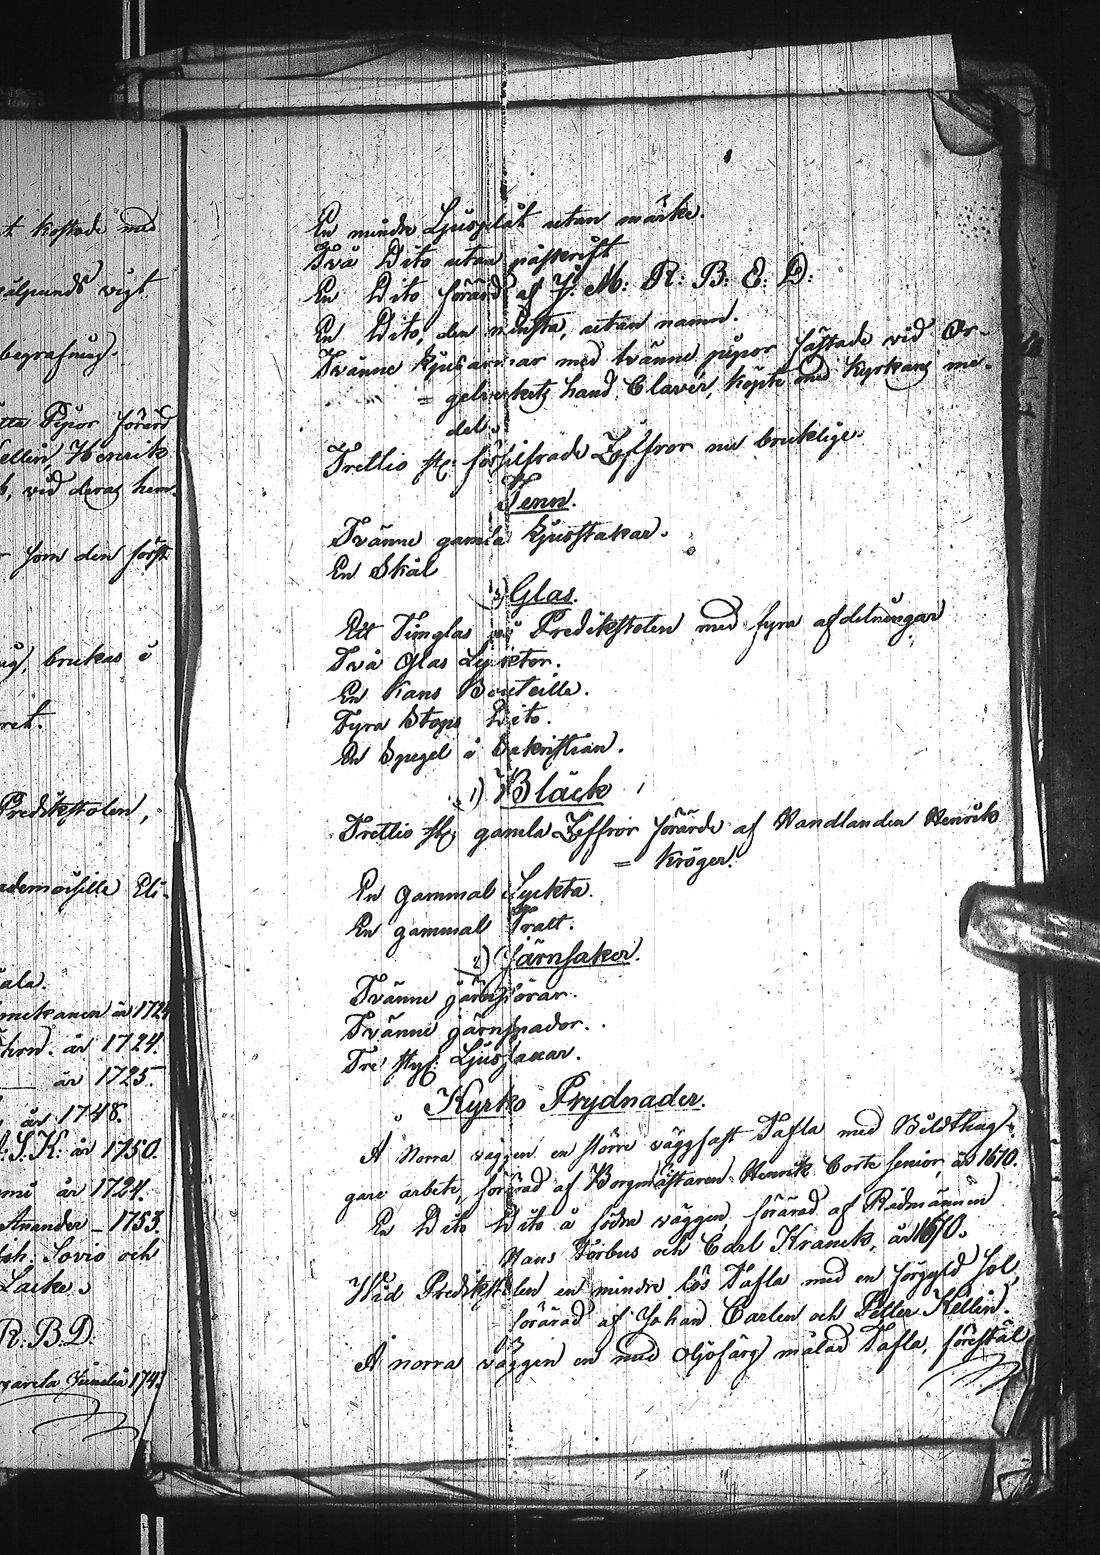 t kostade med
skålpunds vigt.
begrafning.
Pipor förärd
Kellin, Henrik
vid deras hem-
som den först
brukas i
Predikstolen,
ademoiselle Eli-
år 1724
år 1724.
år 1725.
år 1748.
S. K: år 1750.
år 1724.
Amander – 1753.
Joh: Sovio och
Lacke.
R. B. D.
Junelia 1743
En mindre Ljusplåt utan märke.
Två Dito utan påskrift
En Dito förärd af J: M: R: B: E: D:
En Dito, den minsta, utan namn.
Tvänne Ljusarmar med tvänne pipor fästade vid Or-
= gelverkets hand Claver, köpte med Kyrkans me-
del.
Trettio st: försilfrade Ziffror nu bruklige.
Tenn.
Tvänne gamla Ljusstakar.
En Skål
3) Glas.
Ett Timglas på Predikstolen med fyra afdelningar
Två Glas Lycktor.
En Kans Bouteille.
Fyra Stops Dito.
En Spegel i Sakristian.
1) Bläck
Trettio st: gamla Ziffror förärde af Handlanden Henrik
= Kröger.
En gammal Lyckta.
En gammal Tratt.
2) Järnsaker.
Tvänne järnstörar.
Tvänne järnspador.
Tre sty: Ljussaxar.
Kyrko Prydnader.
Å Norra väggen en större väggfast Tafla med Bildthug-
gare arbete, förärad af Borgmästaren Henrik Corte senior, år 1670.
En Dito Dito å södra väggen, förärad af Rådmännen
Hans Forbus och Carl Kranck, år 1670.
Wid Predikstolen en mindre lös Tafla med en förgyld Sol,
förärad af Johan Carlen och Petter Kellin.
Å norra väggen en med Oljofärg målad Tafla, förestäl